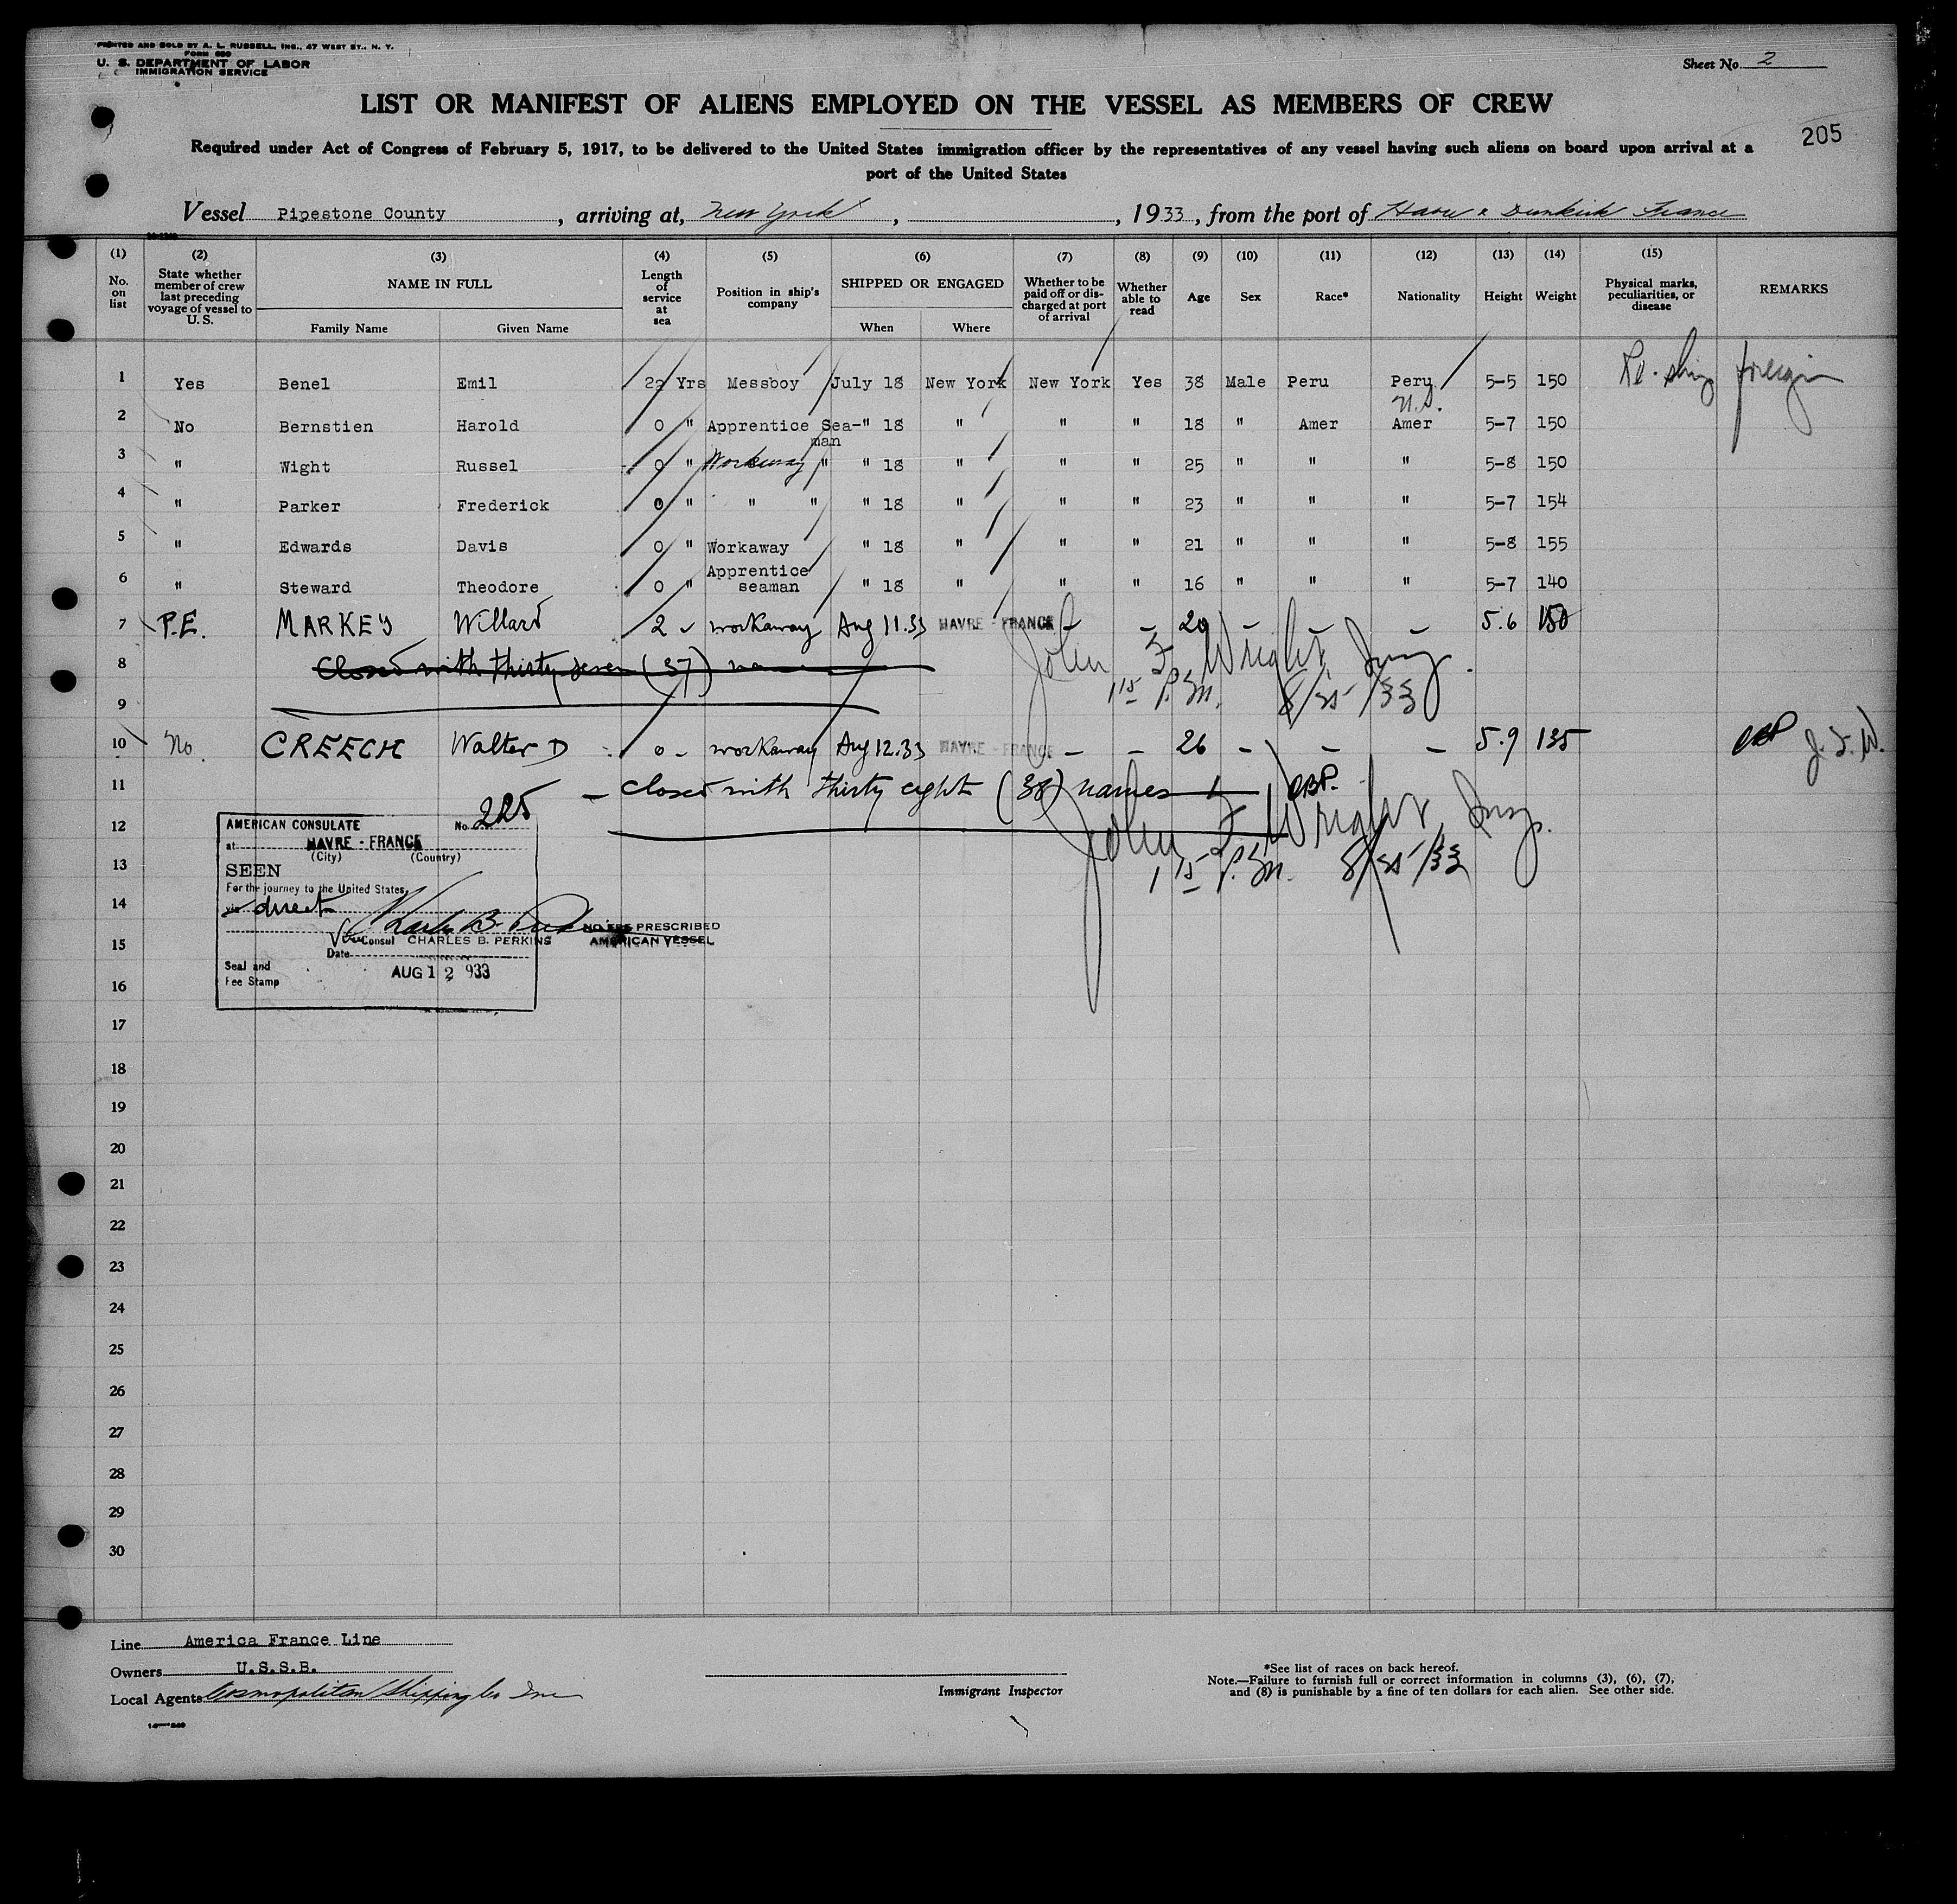 PRINTED AND SOLD BY A. L. RUSSELL, INC., 47 WEST ST., N. Y.
FORM 680
U. S. DEPARTMENT OF LABOR
IMMIGRATION SERVICE
Sheet No. 2
LIST OR MANIFEST OF ALIENS EMPLOYED ON THE VESSEL AS MEMBERS OF CREW
205
Required under Act of Congress of February 5, 1917, to be delivered to the United States immigration officer by the representatives of any vessel having such aliens on board upon arrival at a
port of the United States
Vessel Pipestone County, arriving at, New York, , 1933, from the port of Havre & Dunkirk France
(1) (2) (3) (4) (5) (6) (7) (8) (9) (10) (11) (12) (13) (14) (15)
No. on list
State whether member of crew last preceding voyage of vessel to U. S.
NAME IN FULL
Family Name Given Name
Length of service at sea
Position in ship's company
SHIPPED OR ENGAGED
When Where
Whether to be paid off or discharged at port of arrival
Whether able to read
Age Sex Race* Nationality Height Weight
Physical marks, peculiarities, or disease
REMARKS
1 Yes Benel Emil 22 Yrs Messboy July 18 New York New York Yes 38 Male Peru Peru 5-5 150 Re-ship foreign
U.S.
2 No Bernstien Harold 0 " Apprentice Sea- " 18 " " " 18 " Amer Amer 5-7 150
man
3 " Wight Russel 0 " Workaway " " 18 " " " 25 " " " 5-8 150
4 " Parker Frederick 0 " " " " 18 " " " 23 " " " 5-7 154
5 " Edwards Davis 0 " Workaway " 18 " " " 21 " " " 5-8 155
6 " Steward Theodore 0 " Apprentice seaman " 18 " " " 16 " " " 5-7 140
7 P.E. MARKEY Willard 2 workaway Aug 11.33 HAVRE - FRANCE - - 20 - - - 5.6 150
8 Closed with thirty seven (37) names John F Wright Insp.
1 15 P.M. 8/25/33
9
10 No. CREECH Walter D 0 - workaway Aug 12.33 HAVRE - FRANCE - - 26 - - - 5.9 135 CBP J.F.W.
11 - Closed with thirty eight (38) names CBP.
12 John F Wright Insp.
13 1 15 P.M. 8/25/33
14
15
16
17
18
19
20
21
22
23
24
25
26
27
28
29
30
AMERICAN CONSULATE No. 225
at HAVRE - FRANCE
(City) (Country)
SEEN
For the journey to the United States,
via direct
Charles B. Perkins
Vice Consul CHARLES B. PERKINS
NO FEE PRESCRIBED
AMERICAN VESSEL
Date
AUG 12 933
Seal and
Fee Stamp
Line America France Line
Owners U.S.S.B.
Local Agents Cosmopolitan Shipping Co Inc
Immigrant Inspector
*See list of races on back hereof.
Note.—Failure to furnish full or correct information in columns (3), (6), (7),
and (8) is punishable by a fine of ten dollars for each alien. See other side.